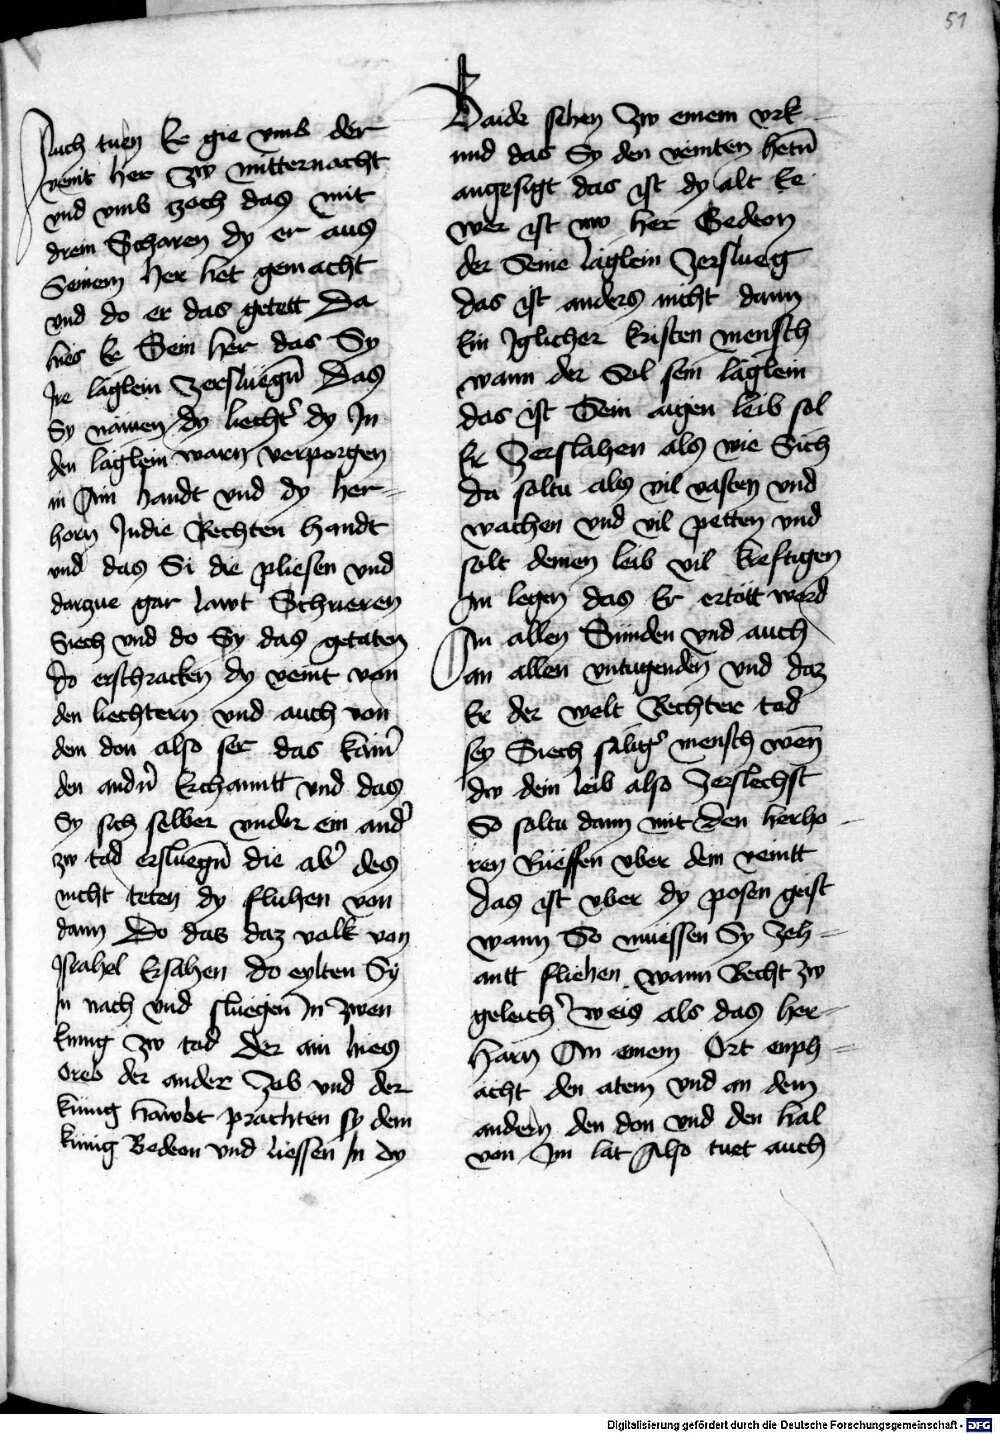 51
Auch tuen Er gie vmb der
veint her zw mitternacht
vnd vmb zoch das mit
drein Scharen dy er aus
Seinem her het gemacht
vnd do er das getett Da
hies Er Sein her das Sy
Ire läglein Zersluegn̄ Das
Sy namen dy liecht' dy In
den läglein warn verporgen
in Ain handt vnd dy her=
horn Indie Rechten Handt
vnd das Si die pliesen vnd
darzue gar lawt Schrieren
Siech vnd do Sy das getaten
do erschracken dy veint von
den liechtern vnd auch von
dem don also ser das kain'
den andn̄ Erchanntt vnd das
Sy sich selber vnder ein and'
zw tod ersluegn̄ die ab' des
nicht teten dy fluhen von
dann Do das daz volk von
Israhel Ersahen do eylten Sy
In nach vnd sluegen In zwen
kunig zw tod Der ain hies
oreb der ander Zeb vnd der
künig hawbt prachten sy dem
künig Gedeon vnd liessen In dy
Baide sehen Zw einem vrk
und das Sy den veinten hetn̄
angesigt das ist dy alt Ee
wer ist nw her Gedeon
der Seine läglein Zerslueg
das ist anders nicht dann
Ein Iglicher kristen mensch
wann der Sol sein läglein
das ist Sein aigen leib sol
Er Zerslahen als wie Sich
da soltu als vil vasten vnd
wachen vnd vil petten vnd
solt deinen leib vil kreftigen
An legen das Er ertött werd
An allen Sünden vnd auch
an allen vntugenden vnd daz
Er der welt Rechter tod
sey Siech salig' mensch wen̄
dw dein leib also Zerslechst
So soltu dann mit den herho=
ren Rüeffen vber dem veintt
Das ist vber dy posen geist
wann So muessen Sy Zeh=
antt fliehen wann Recht zw
geleich' weis als das her=
Harn An einem Ort enph=
acht den atem vnd an dem
andern den don vnd den hal
von Im lat Also tuet auch
Digitalisierung gefördert durch die Deutsche Forschungsgemeinschaft - DFG